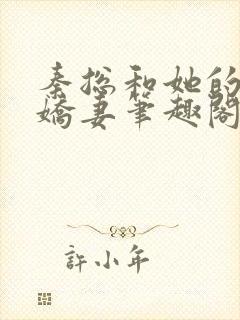 秦総和她的
嬌妻筆趣閣
許小年